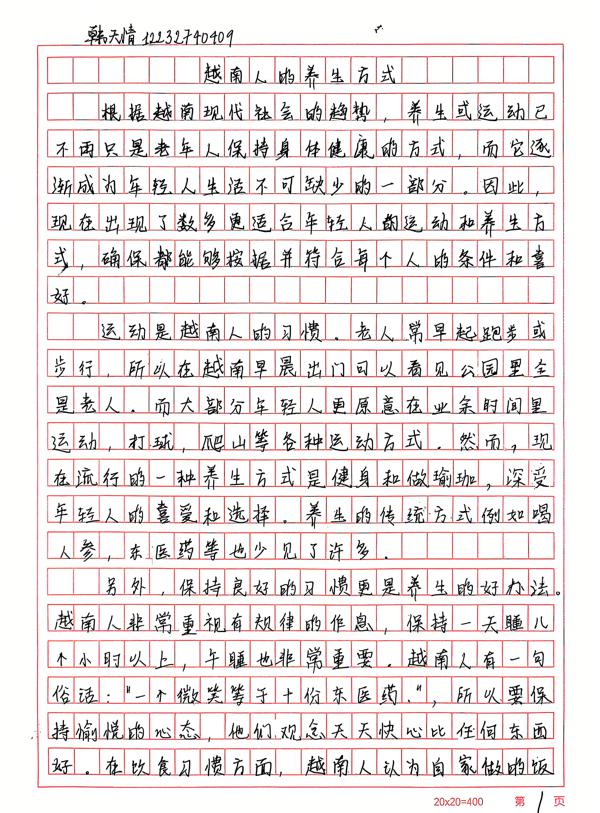 韩天情 12232740409
越南人的养生方式
根据越南现代社会的趋势，养生或运动已
不再只是老年人保持身体健康的方式，而它逐
渐成为年轻人生活不可缺少的一部分。因此，
现在出现了数多更适合年轻人的运动和养生方
式，确保都能够按据并符合每个人的条件和喜
好。
运动是越南人的习惯．老人常早起跑步或
步行，所以在越南早晨出门可以看见公园里全
是老人．而大部分年轻人更原意在业条时间里
运动，打球，爬山等各种运动方式．然而，现
在流行的一种养生方式是健身和做瑜珈，深受
年轻人的喜爱和选择。养生的传统方式例如喝
人参，东医药等也少见了许多．
另外，保持良好的习惯更是养生的好办法。
越南人非常重视有规律的作息，保持一天睡八
个小时以上，午睡也非常重要．越南人有一句
俗话："一个微笑等于十份东医药．"，所以要保
持愉悦的心态，他们观念天天快心比任何东西
好．在饮食习惯方面，越南人认为自家做的饭
20x20=400 第 1 页